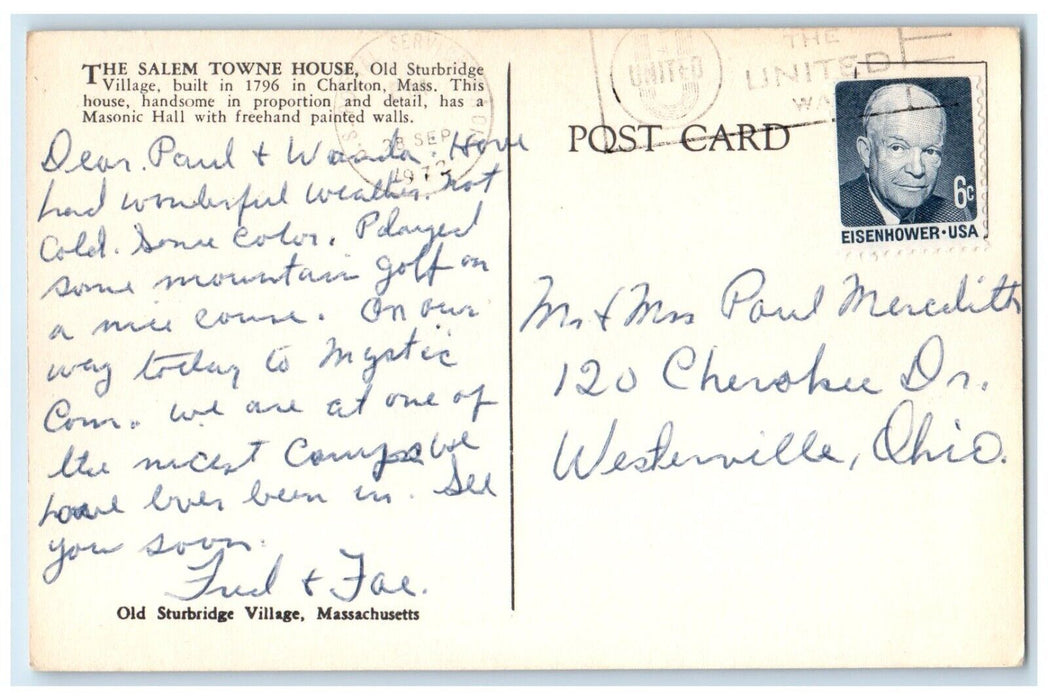 THE SALEM TOWNE HOUSE, Old Sturbridge
Village, built in 1796 in Charlton, Mass. This
house, handsome in proportion and detail, has a
Masonic Hall with freehand painted walls.
Dear Paul + Wanda. Have
had wonderful weather. not
Cold. Some color. Played
some mountain golf on
a nice course. On our
way today to Mystic
Conn. we are at one of
the nicest Camps we
have ever been in. See
you soon.
Fred + Fae.
Old Sturbridge Village, Massachusetts
SERV
28 SEP
197
UNITED
THE
UNITED
WA
POST CARD
6c
EISENHOWER·USA
Mr + Mrs Paul Meredith
120 Cherokee Dr.
Westerville, Ohio.